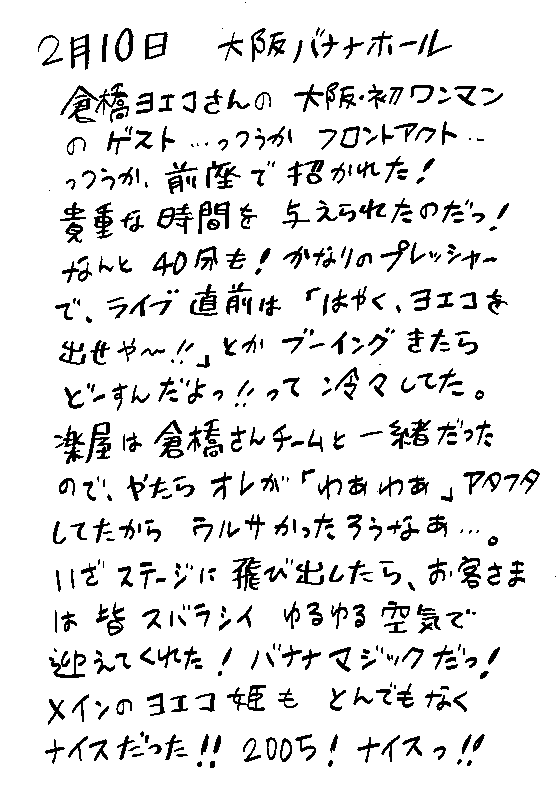 2月10日 大阪バナナホール
倉橋ヨエコさんの 大阪・初ワンマン
の ゲスト…っつうか フロントアクト…
っつうか、前座で 招かれた!
貴重な時間を 与えられたのだっ!
なんと 40分も! かなりのプレッシャー
で、ライブ直前は 「はやく、ヨエコを
出せや〜!!」とか ブーイング きたら
どーすんだよっ!! って 冷々してた。
楽屋は倉橋さんチームと 一緒だった
ので、やたら オレが 「わぁわぁ」アタフタ
してたから ウルサかったろうなぁ…。
いざ ステージに 飛び出したら、お客さま
は 皆 スバラシイ ゆるゆる 空気で
迎えてくれた! バナナマジックだっ!
メインの ヨエコ姫も とんでもなく
ナイスだった!! 2005! ナイスっ!!